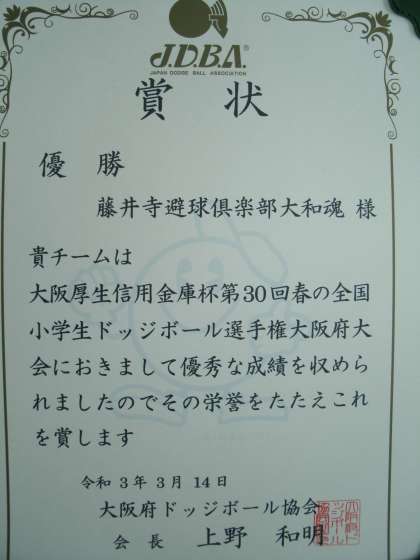 J.D.B.A.®
JAPAN DODGE BALL ASSOCIATION
賞状
優勝
藤井寺避球倶楽部大和魂 様
貴チームは
大阪厚生信用金庫杯第30回春の全国
小学生ドッジボール選手権大阪府大
会におきまして優秀な成績を収めら
れましたのでその栄誉をたたえこれ
を賞します
令和3年3月14日
大阪府ドッジボール協会
会長 上野 和明